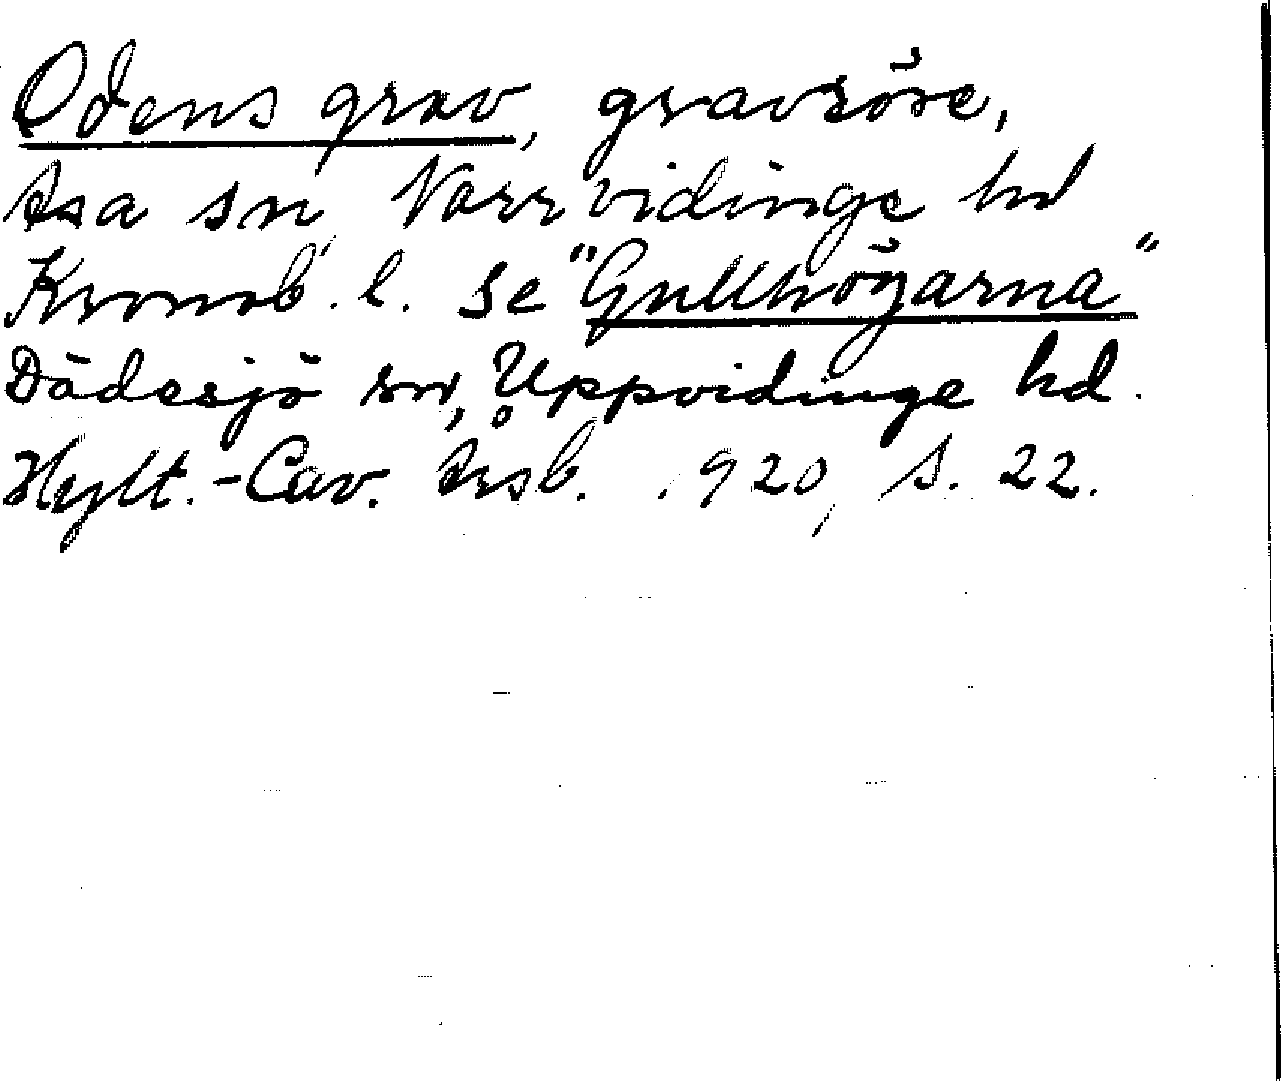 Odens grav, gravröse,
Asa sn, Norrvidinge hd
Kronob. l. Se "Gullhögarna"
Dädesjö sn, Uppvidinge hd.
Hylt.-Cav. Årsb. 1920, s. 22.